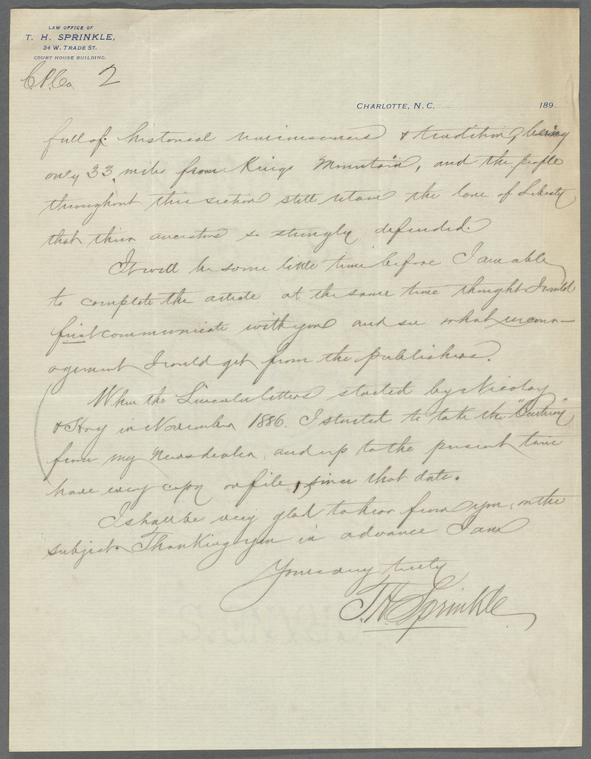 LAW OFFICE OF
T. H. SPRINKLE,
24 W. TRADE ST.
COURT HOUSE BUILDING.
C P. Co. 2
CHARLOTTE, N. C. 189
full of historical & tradition, being
only 33 miles from Kings Mountain, and the people
throughout this section still retain the love of Liberty
that their ancestors so strongly defended.
It will be some little time before I am able
to complete the article at the same time thought I would
first communicate with you and see what encour-
agement I would get from the publishers.
When the Lincoln letters started by Nicolay
& Hay in November 1886. I started to take the "Century"
from my Newsdealer, and up to the present time
have every copy on file, since that date.
I shall be very glad to hear from you, on the
subject. Thanking you in advance I am
Yours very truly
T. H. Sprinkle